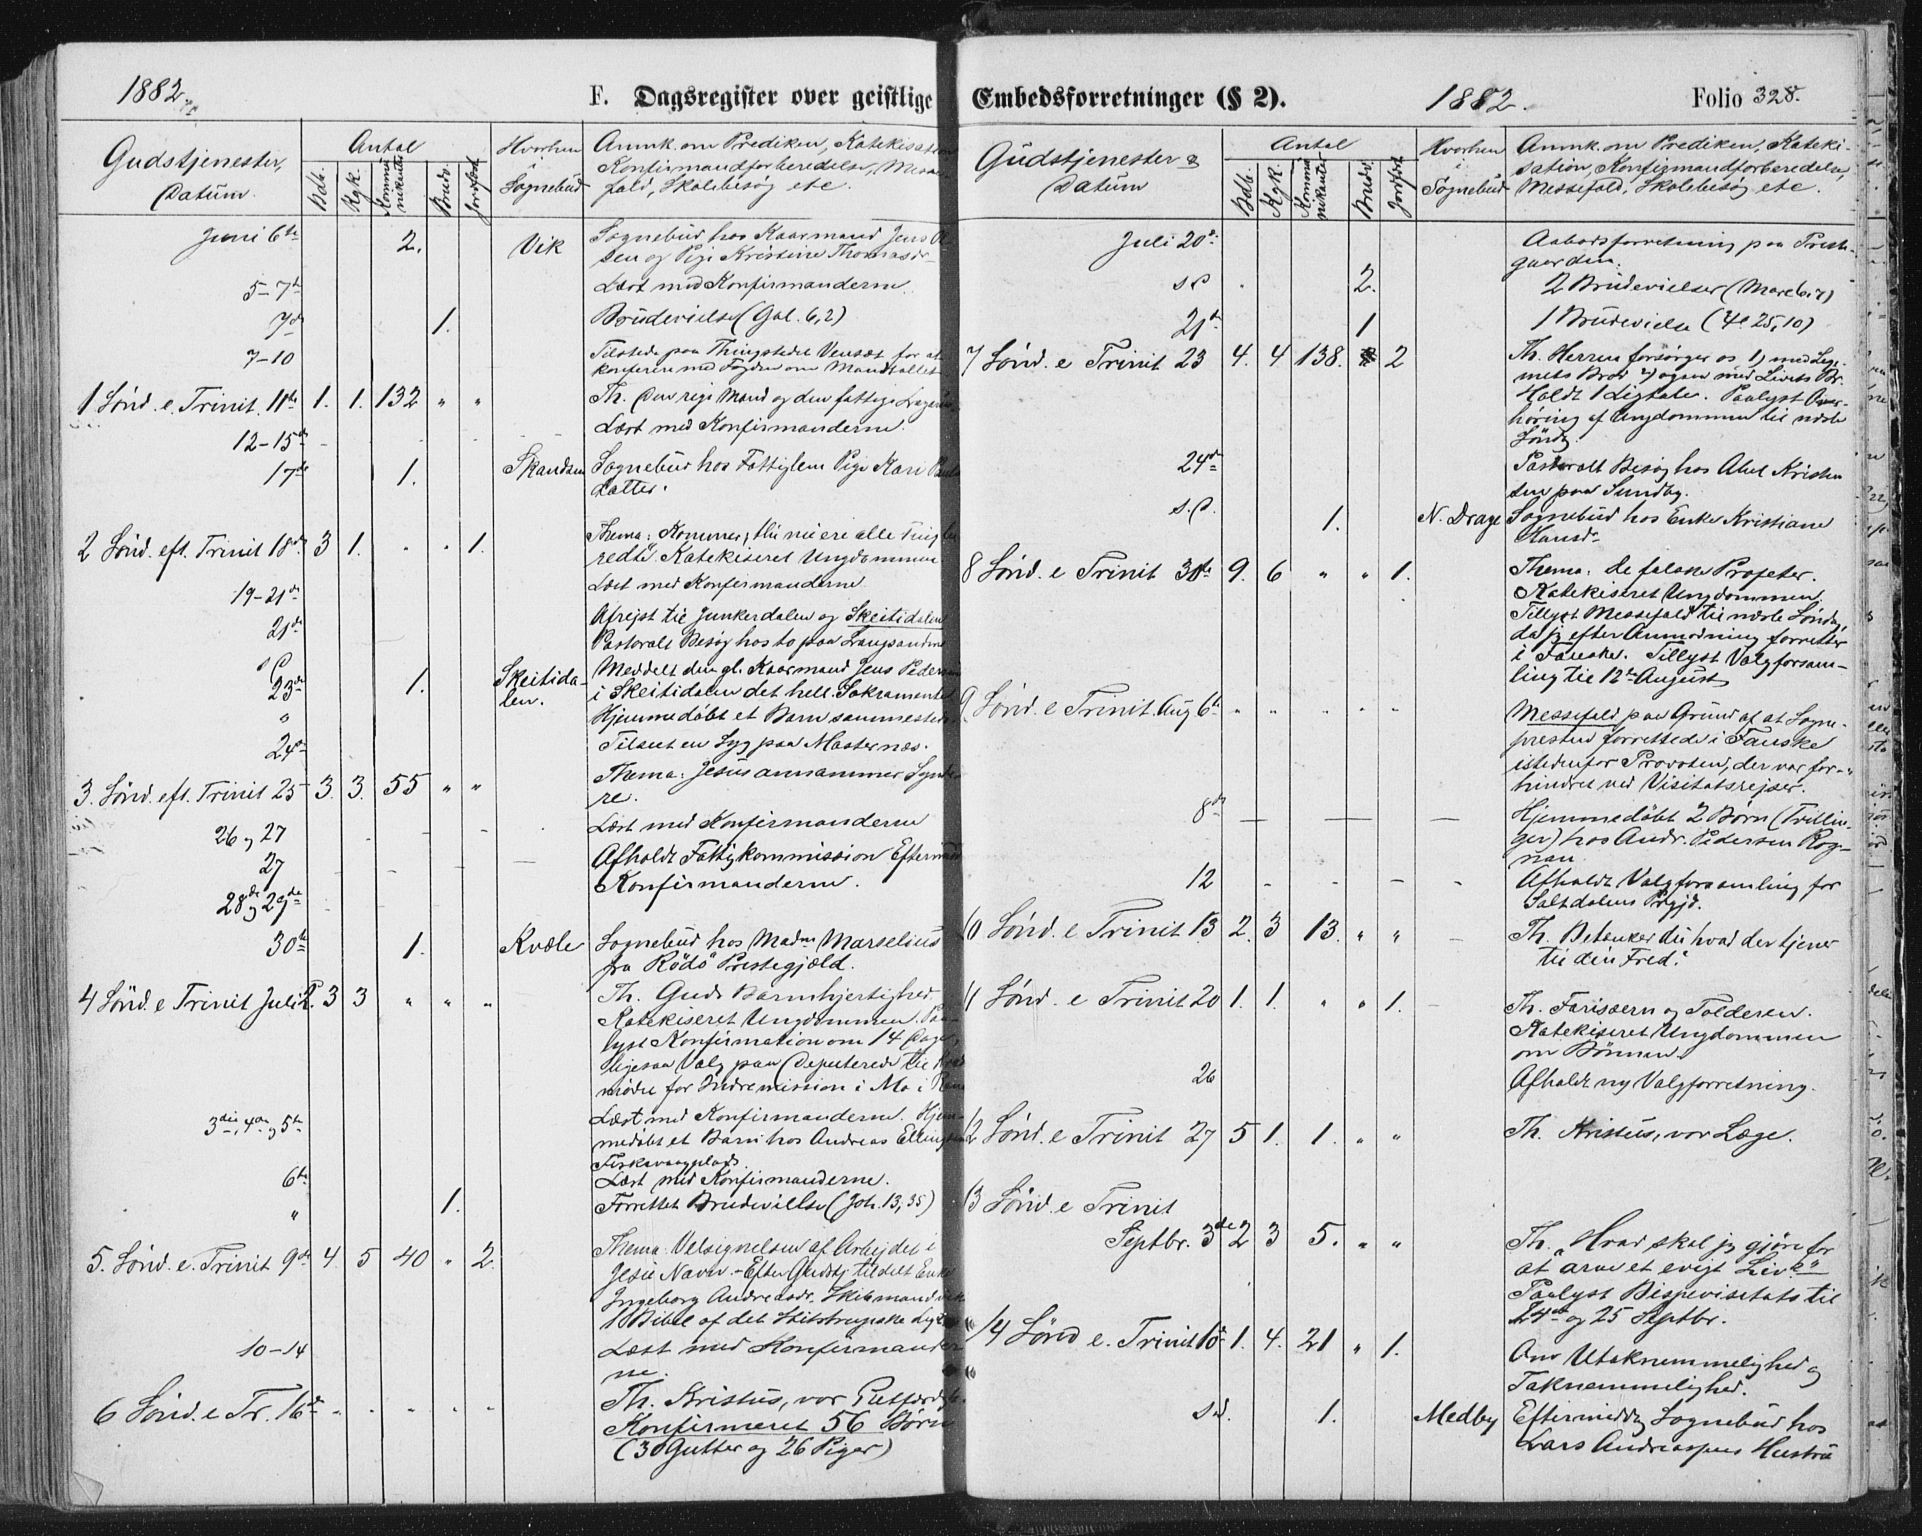 1882
F. Dagsregister over geistlige
Gudstjenester, Datum.
Antal
Hvorhen i Sognebud
Anmk. om Prediken, Katekisation
Konfirmandforberedelse, Messe-
fald, Skolebesøg etc.
Daab. Kgk. Kommunikanter Brudv. Jordfæst
Juni 6te 2. Vik Sognebud hos Kaarmand Jens Ol-
sen og Pige Kristine Thomasdr
5-7de Læst med Konfirmanderne.
7de 1. Brudevielse (Gal. 6,2)
7-10 Tilstede paa Thingstedet Venset for at
konferere med Fogden om Mandtallet
1 Sønd. e. Trinit. 11te 1. 1. 132 " " Th. Den rige Mand og den fattige Lazarus
12-15de Læst med Konfirmanderne.
17de 1. Skandsen Sognebud hos Fattiglem Pige Kari
Datter.
2 Sønd. eft. Trinit 18de 3 1. " " 1. Thema: Kommer, thi nu ere alle Ting be
redte. Katekiseret Ungdommen
19-21de Læst med Konfirmanderne
21de Afrejst til Junkerdalen og Skeitidalen
s D Pastoralt Besøg hos to paa Langsanden
23de 1. Skeitida-
len. Meddelt den gl. Kaarmand Jens Pedersen
i Skeitidalen det hell. Sakramentet
" Hjemmedøbt et Barn sammesteds
24de Tilseet en Syg paa Masternæs.
3. Sønd. eft. Trinit 25 3. 3. 55 " " Thema: Jesus annammer Synde-
re.
26 og 27 Læst med Konfirmanderne
27 Afholdt Fattigkommission Efterm
28de og 29de Konfirmanderne.
30te 1. Kvæle Sognebud hos Madm Marselius
fra Rödö Prestegjæld.
4 Sønd. e Trinit Juli 2. 3 3 " " " Th. Guds Barmhjertighed
Katekiseret Ungdommen.
lyst Konfirmation om 14 Dage,
ligesaa Valg paa Deputerede til
møde for Indremission i Mo i Rana
3die, 4de og 5te Læst med Konfirmanderne. Hjem-
medøbt et Barn hos Andreas Ellingsen
Fiskevaagplads
6te Læst med Konfirmanderne.
" 1. Forrettet Brudevielse (Joh. 13,35)
5. Sønd. e. Trinit 9de 4. 5 40 " 2. Thema: Velsignelsen af Arbejdet i
Jesu Navn. - Efter Gudstj. tildelt Enke
Ingeborg Andreasdr. Skibmandvik
1 Bibel af det
10-14 Læst med Konfirmander-
ne.
6 Sønd. e Tr. 16de " " " " " Th. Kristus, vor Retfærdighed
Konfirmeret 56 Børn
(30 Gutter og 26 Piger)
Embedsforretninger (§ 2).
1882.
Folio 328.
Gudstjenester & Datum
Antal
Hvorhen i Sognebud
Anmk. om Prediken, Kateki-
sation, Konfirmandforberedelse,
Messefald, Skolebesøg etc.
Daab. Kgk. Kommunikanter Brudv. Jordfæst
Juli 20de Aabodsforretning paa Preste-
gaarden.
s D 2. 2 Brudevielser
21de 1 1 Brudevielse (25,10)
7 Sønd. e Trinit 23 4. 4 138. 2 Th. Herren forsørger os 1) med Lege-
mets Brød 2) ogsaa med Livets Br.
Holdt 1 Ligtale. Paalyst Over-
høring af Ungdommen til næste
Søndg.
24de Pastoralt Besøg hos Abel Kristen
sen paa Sundby.
s. D. 1. N. Drage Sognebud hos Enke Kristiane
Hansdr
8 Sønd. e Trinit 30te 9. 6 " " 1. Thema: De falske Profeter.
Katekiseret Ungdommen
Tillyst Messefald til næste Søndag,
da jeg efter Anmodning forretter
i Fauske. Tillyst Valgforsam-
ling til 12te August
9. Sønd. e Trinit. Aug 6te " " " " " Messefald paa Grund af at Sogne-
presten forrettede i Fauske
istedenfor Provsten, der var for-
hindret ved Visitatsrejser.
8de Hjemmedøbt 2 Børn (Tvillin-
ger) hos Andr. Pedersen Rog-
nan
12 Afholdt Valgforsamling for
Saltdalens Prgjd.
10 Sønd. e Trinit 13 2. 3 13. " " Th. Betænker du hvad der tjener
til din Fred.
11 Sønd. e Trinit 20 1. 1. " " 1. Th. Farisæern og Tolderen.
Katekiseret Ungdommen
om Bønnen.
26 Afholdt ny Valgforretning.
12 Sønd. e Trinit 27 5 1. 1. " " Th. Kristus, vor Læge.
13 Sønd. e Trinit
Septbr. 3de 2 3 5. " " Th. "Hvad skal jeg gjøre for
at arve et evigt Liv?"
Paalyst Bispevisitats til
24de og 25 Septbr.
14 Sønd e. Trinit 10de 1. 4. 21 " 1. Om Utaknemmelighed og
Taknemmelighed.
s d. 1. Medby Eftermiddg Sognebud hos
Lars Andreassens Hustru